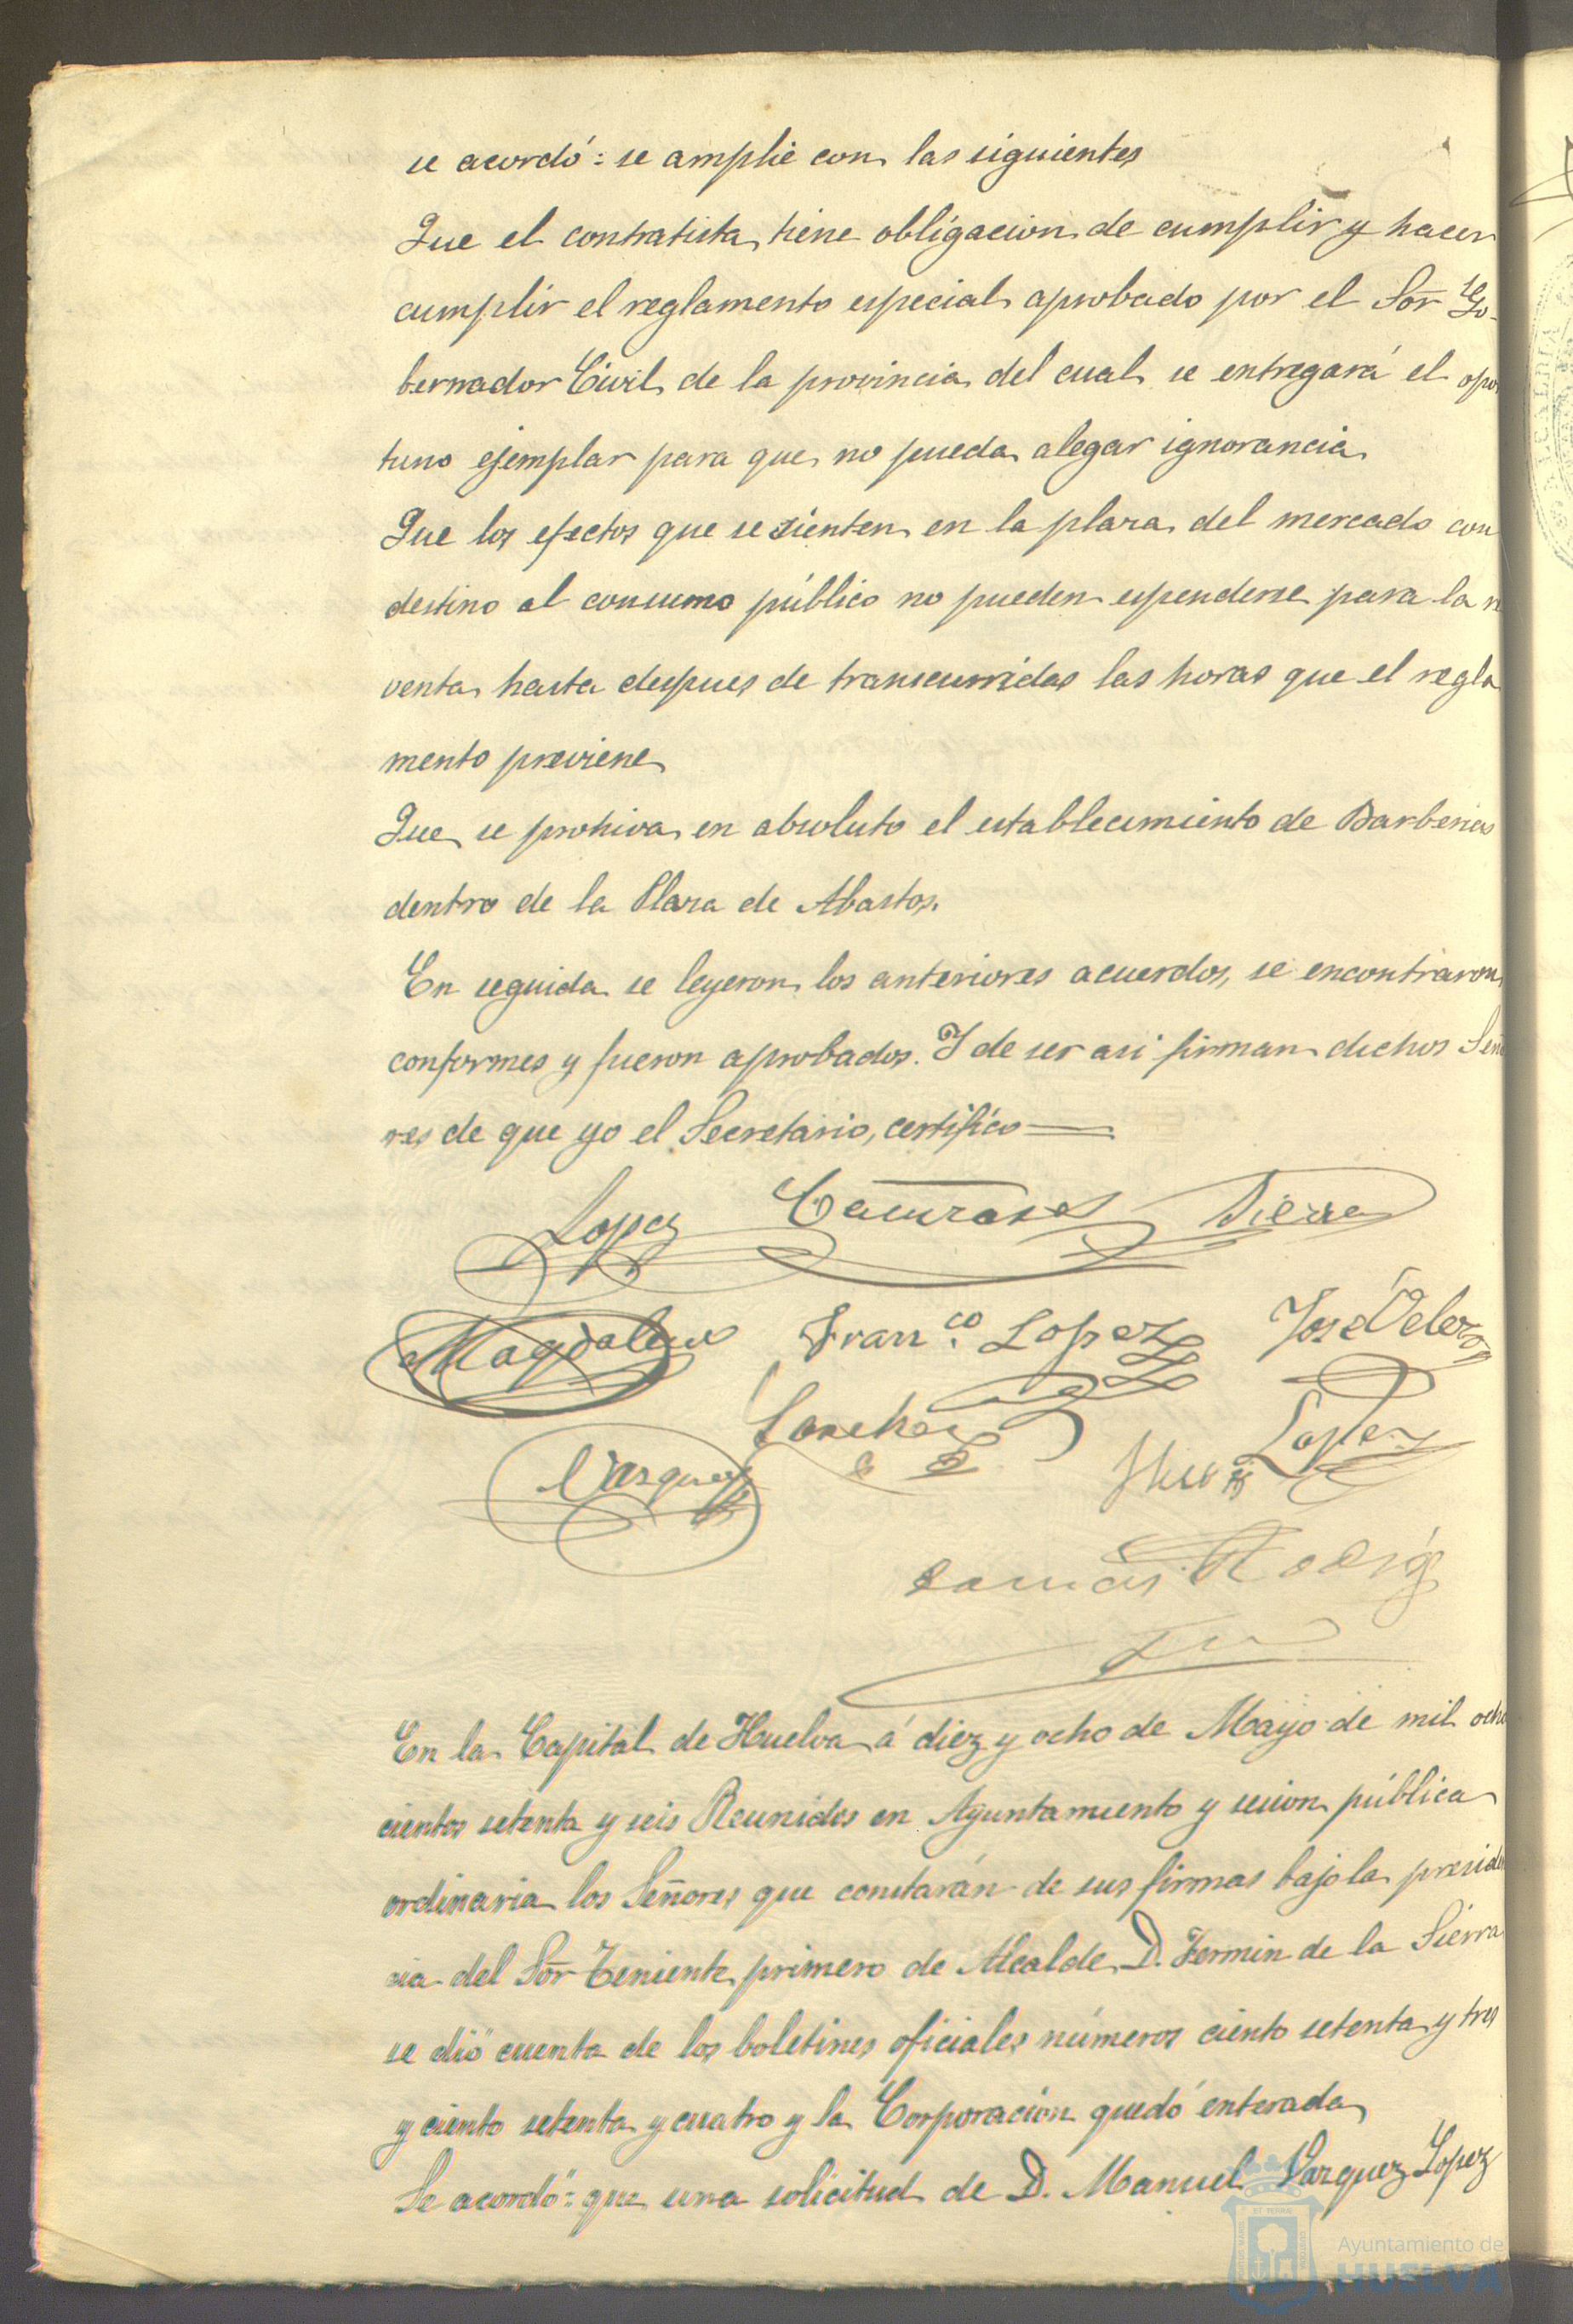 se acordó: se amplie con las siguientes
Que el contratista tiene obligacion de cumplir y hacer
cumplir el reglamento especial aprobado por el Sor Go-
bernador Civil de la provincia del cual se entregará el opor
tuno ejemplar para que no pueda alegar ignorancia
Que los efectos que se sienten en la plaza del mercado con
destino al consumo público no pueden espenderse para la re
venta hasta despues de transcurridas las horas que el regla
mento previene
Que se prohiva en absoluto el establecimiento de Barberias
dentro de la Plaza de Abastos.
En seguida se leyeron los anteriores acuerdos, se encontraron
conformes y fueron aprobados. Y de ser asi firman dichos Seño
res de que yo el Secretario, certifico
Lopez Sierra
Magdalena Franco. Lopez José
Sanchez Lopez
Vazquez
En la Capital de Huelva á diez y ocho de Mayo de mil ocho
cientos setenta y seis Reunidos en Ayuntamiento y sesion pública
ordinaria los Señores que constarán de sus firmas bajo la presiden
cia del Sor Teniente primero de Alcalde D. Fermin de la Sierra
se dió cuenta de los boletines oficiales números ciento setenta y tres
y ciento setenta y cuatro y la Corporacion quedó enterada
Se acordó: que una solicitud de D. Manuel Vazquez Lopez
Ayuntamiento de
HUELVA